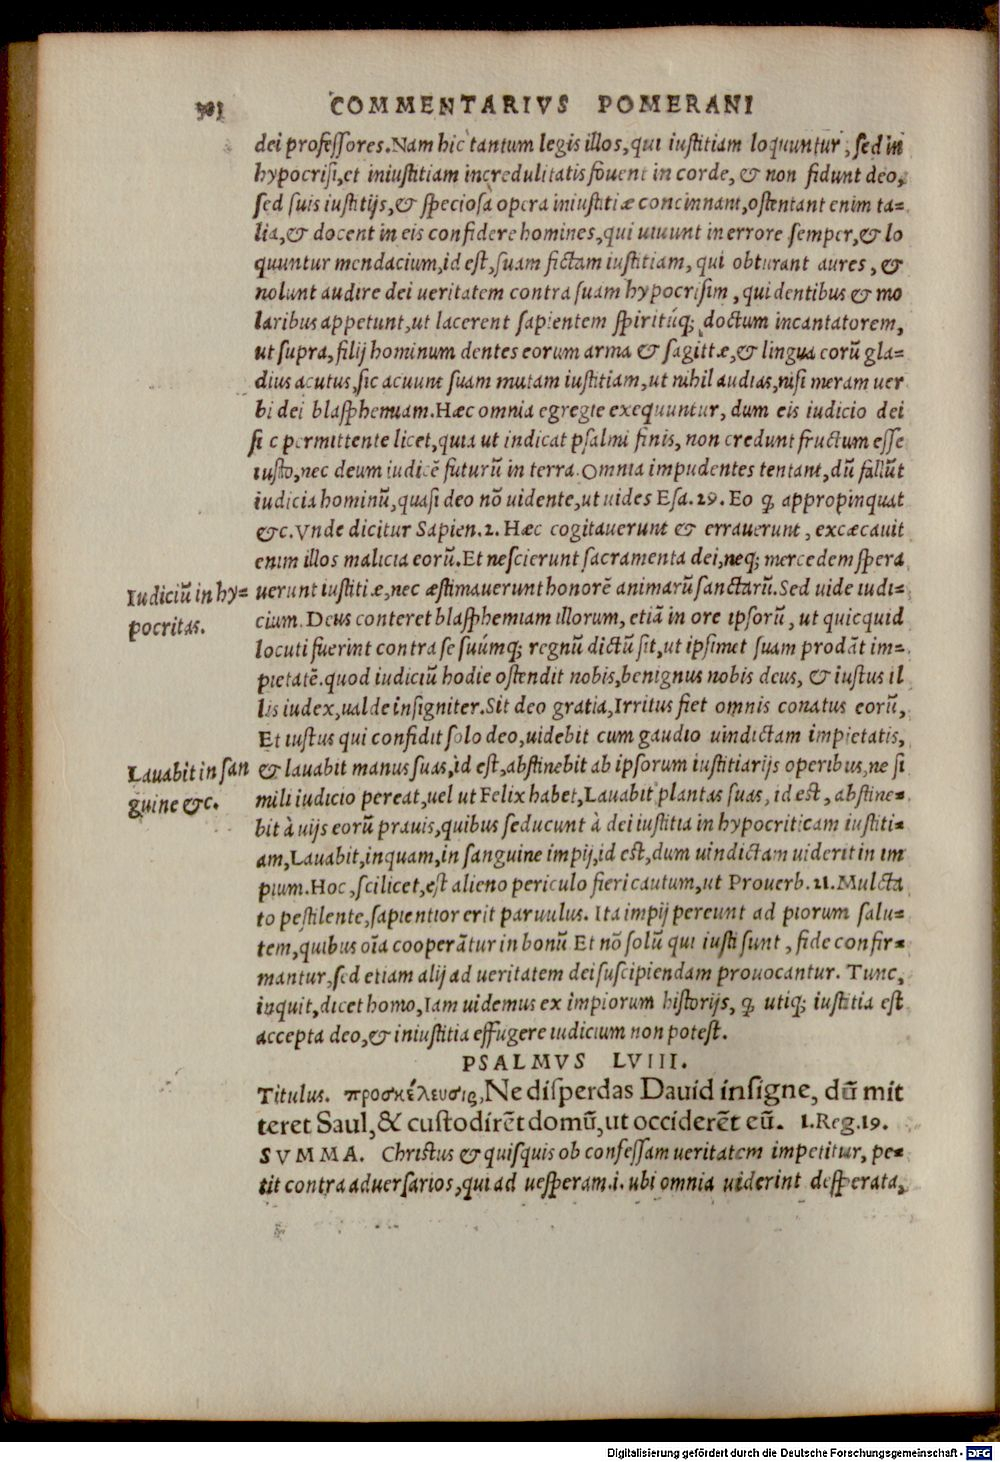 COMMENTARIVS POMERANI
dei professores.Nam hic tantum legis illos,qui iustitiam loquuntur, sed in
hypocrisi,et iniustitiam incredulitatis fouent in corde, & non fidunt deo,
sed suis iustitijs,& speciosa opera iniustitiæ concinnant,ostentant enim ta=
lia,& docent in eis confidere homines,qui uiuunt in errore semper,& lo
quuntur mendacium,id est,suam fictam iustitiam, qui obturant aures, &
nolunt audire dei ueritatem contra suam hypocrisim, qui dentibus & mo
laribus appetunt,ut lacerent sapientem spiritúq; doctum incantatorem,
ut supra,filij hominum dentes eorum arma & sagittæ,& lingua eorũ gla=
dius acutus,sic acuunt suam mutam iustitiam,ut nihil audias,nisi meram uer
bi dei blasphemiam.Hæc omnia egregie exequuntur, dum eis iudicio dei
sic permittente licet,quia ut indicat psalmi finis, non credunt fructum esse
iusto,nec deum iudicẽ futurũ in terra.Omnia impudentes tentant,dũ fallũt
iudicia hominũ,quasi deo nõ uidente,ut uides Esa.29. Eo ꝙ appropinquat
&c.Vnde dicitur Sapien.2. Hæc cogitauerunt & errauerunt, excæcauit
enim illos malicia eorũ.Et nescierunt sacramenta dei,neq; mercedem spera
Iudiciũ in hy=
pocritas.
uerunt iustitiæ,nec æstimauerunt honorẽ animarũ sanctarũ.Sed uide iudi=
cium.Deus conteret blasphemiam illorum, etiã in ore ipsorũ, ut quicquid
locuti fuerint contra se suúmq; regnũ dictũ sit,ut ipsimet suam prodãt im=
pietatẽ.quod iudiciũ hodie ostendit nobis,benignus nobis deus, & iustus il
lis iudex,ualde insigniter.Sit deo gratia,Irritus fiet omnis conatus eorũ,
Et iustus qui confidit solo deo,uidebit cum gaudio uindictam impietatis,
Lauabit in san
guine &c.
& lauabit manus suas,id est,abstinebit ab ipsorum iustitiarijs operibus,ne si
mili iudicio pereat,uel ut Felix habet,Lauabit plantas suas, id est, abstine=
bit à uijs eorũ prauis,quibus seducunt à dei iustitia in hypocriticam iustiti=
am,Lauabit,inquam,in sanguine impij,id est,dum uindictam uiderit in im
pium.Hoc,scilicet,est alieno periculo fieri cautum,ut Prouerb.21.Mulcta
to pestilente,sapientior erit paruulus. Ita impij pereunt ad piorum salu=
tem,quibus oĩa cooperãtur in bonũ.Et nõ solũ qui iusti sunt, fide confir=
mantur,sed etiam alij ad ueritatem dei suscipiendam prouocantur. Tunc,
inquit,dicet homo,Iam uidemus ex impiorum historijs, ꝙ utiq; iustitia est
accepta deo,& iniustitia effugere iudicium non potest.
PSALMVS LVIII.
Titulus. προσκέλευσις,Ne disperdas Dauid insigne, dũ mit
teret Saul,& custodirẽt domũ,ut occiderẽt eũ. 1.Reg.19.
SVMMA. Christus & quisquis ob confessam ueritatem impetitur, pe=
tit contra aduersarios,qui ad uesperam.i. ubi omnia uiderint desperata,
Digitalisierung gefördert durch die Deutsche Forschungsgemeinschaft - DFG